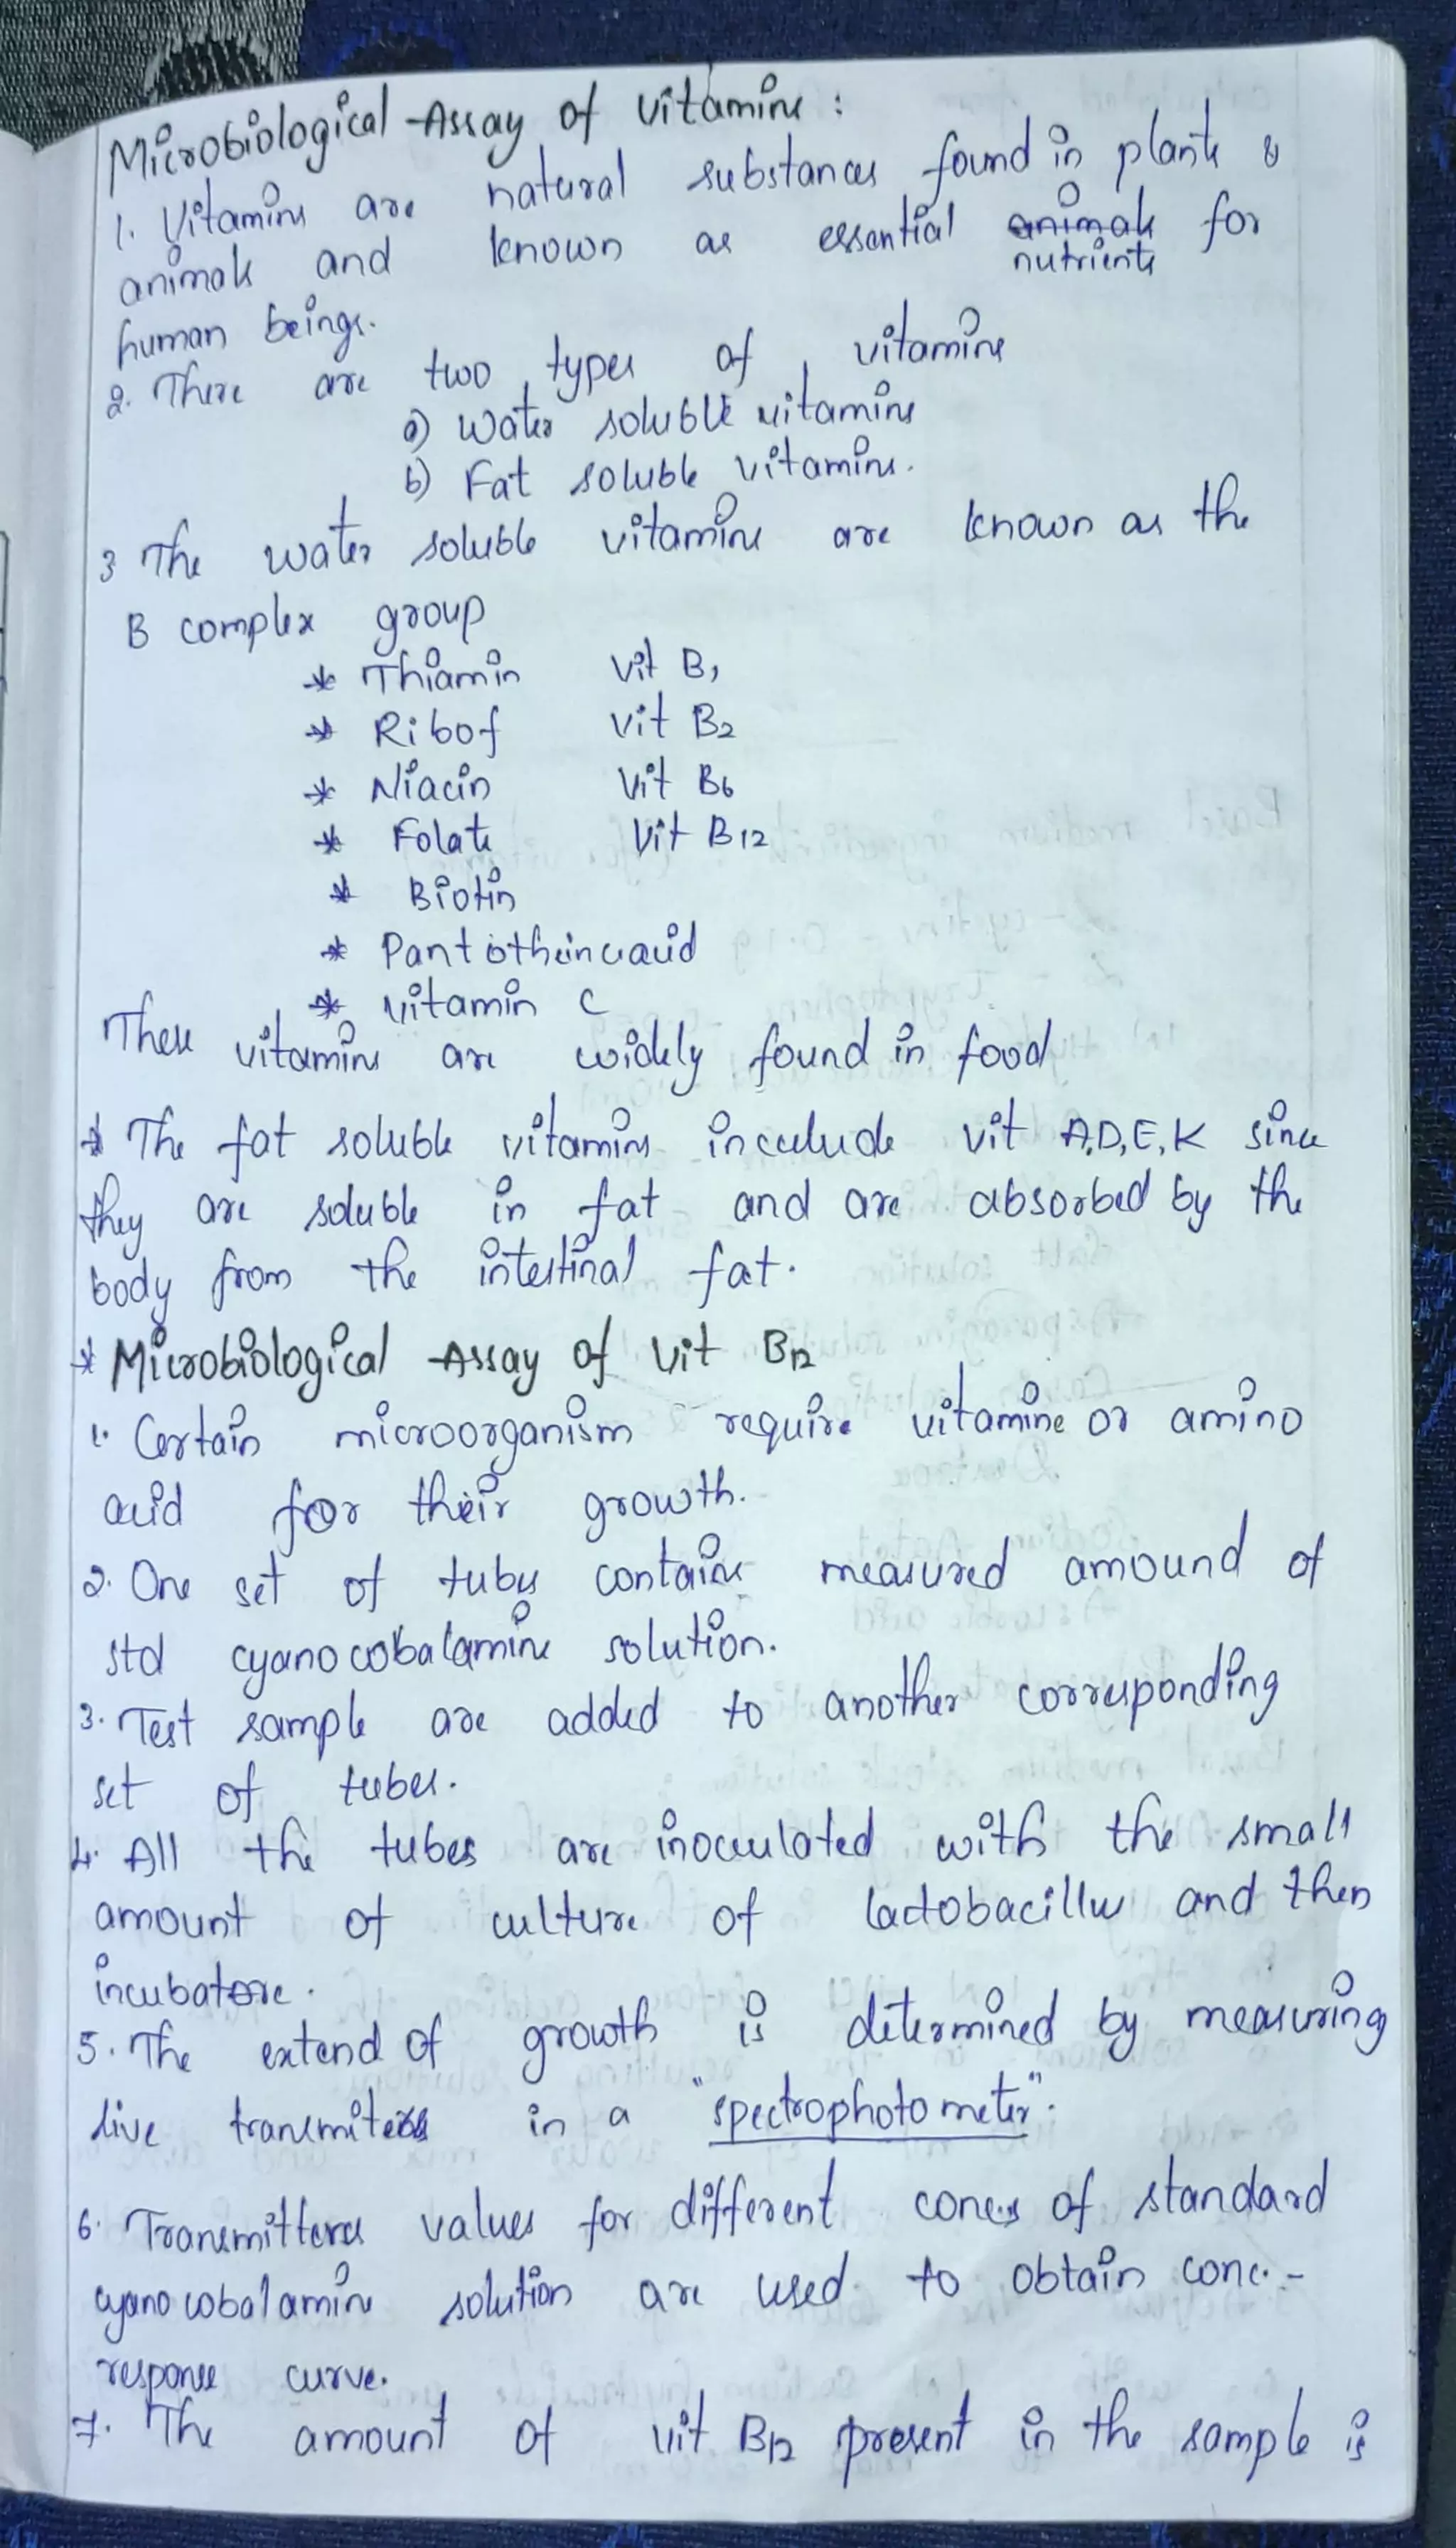 Microbiological Assay of Vitamins :
1. Vitamins are natural substances found in plants &
animals and known as essential animals for
nutrients
human beings.
2. There are two types of vitamins
a) Water soluble vitamins
b) Fat soluble vitamins.
3 The water soluble vitamins are known as the
B complex group
* Thiamin Vit B1
* Ribof Vit B2
* Niacin Vit B6
* Folate Vit B12
* Biotin
* Pantotheinic acid
* Vitamin C
These vitamins are widely found in food
* The fat soluble vitamins include vit A,D,E,K since
they are soluble in fat and are absorbed by the
body from the intestinal fat.
* Microbiological Assay of Vit B12
1. Certain microorganism require vitamine or amino
acid for their growth.
2. One set of tubes contains measured amound of
std cyanocobalamine solution.
3. Test sample are added to another corresponding
set of tubes.
4. All the tubes are inoculated with the small
amount of culture of lactobacillus and then
incubatore.
5. The extend of growth is determined by measuring
live in a "spectrophotometer".
6. values for different cones of standard
cyanocobalamine solution are used to obtain conc.-
response curve.
7. The amount of vit B12 present in the sample is